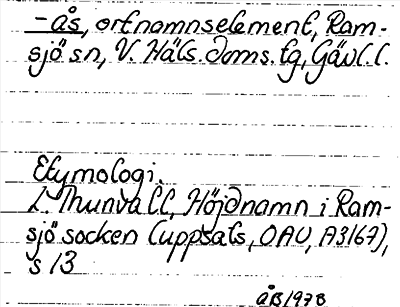 -ås, ortnamnselement, Ram-
sjö sn, V. Häls. doms. tg, Gävl. l.
Etymologi.
L. Thunvall, Höjdnamn i Ram-
sjö socken (uppsats, OAU, A3167),
s 13
åB 1978